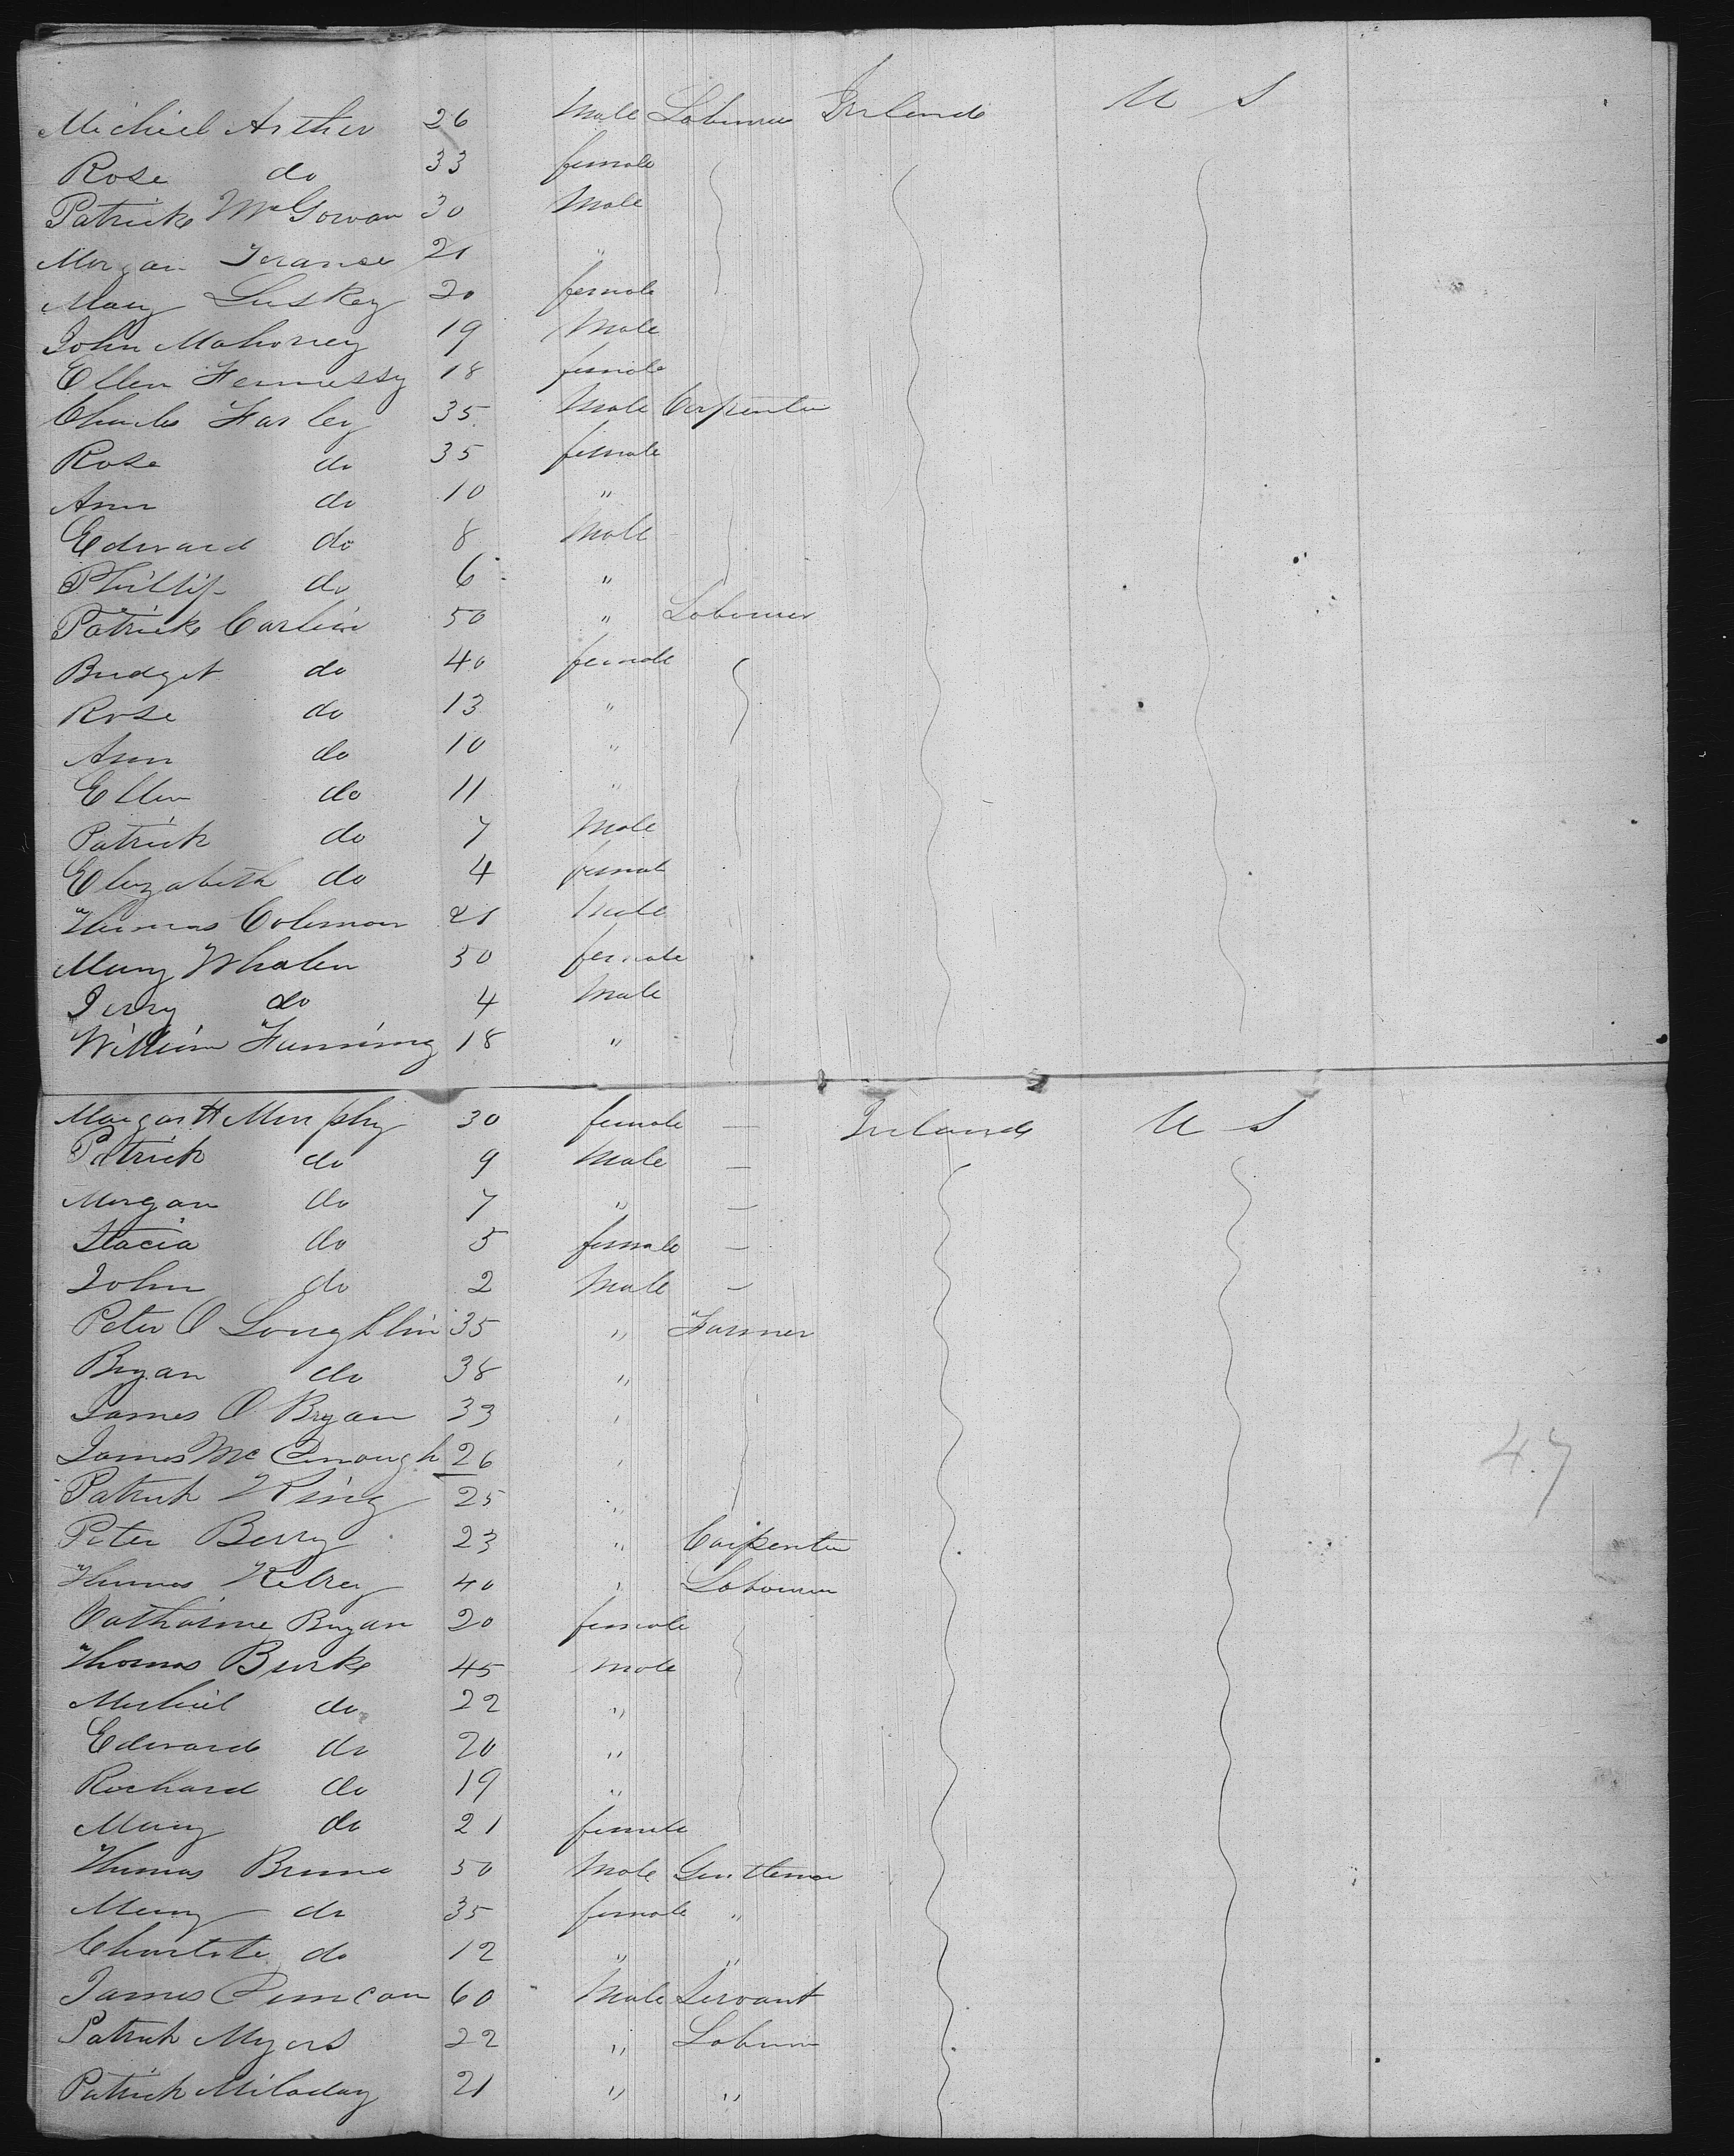 Michael Arther 26 Male Labourer Irland U S
Rose do 33 female
Patrick McGowan 30 Male
Morgan 21 "
Mary Luskey 20 female
John Mahoney 19 Male
Ellen Fennessy 18 female
Charles Farley 35 Male Carpenter
Rose do 35 female
Ann do 10 "
Edward do 8 Male
Phillip do 6 "
Patrick Carlin 50 " Labourer
Bridget do 40 female
Rose do 13 "
Ann do 10 "
Ellen do 11 "
Patrick do 7 Male
Elizabeth do 4 female
Thomas Coleman 21 Male
Mary Whalen 30 female
Jerry do 4 Male
William Fanning 18 "
Margartt Murphy 30 female — Irland U S
Patrick do 9 Male —
Morgan do 7 " —
Stacia do 5 female —
John do 2 Male —
Peter O Loughlin 35 " Farmer
Bryan do 38 "
James O Bryan 33 "
James Mc 26 "
47
Patrick King 25 "
Peter Berry 23 " Carpenter
Thomas 40 " Labourer
Catharine Bryan 20 female
Thomas Burke 45 male
Michael do 22 "
Edward do 20 "
Richard do 19 "
Mary do 21 female
Thomas 50 Male Gentleman
Mary do 35 female "
Charlote do 12 " "
James Duncan 60 Male Servant
Patrick Myers 22 " Labourer
Patrick 21 " "